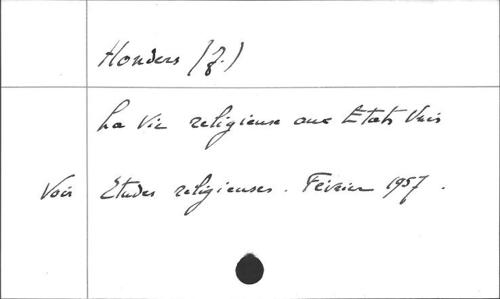 Honders (J.)
La Vie religieuse aux Etats Unis
Voir Etudes religieuses. Février 1957.